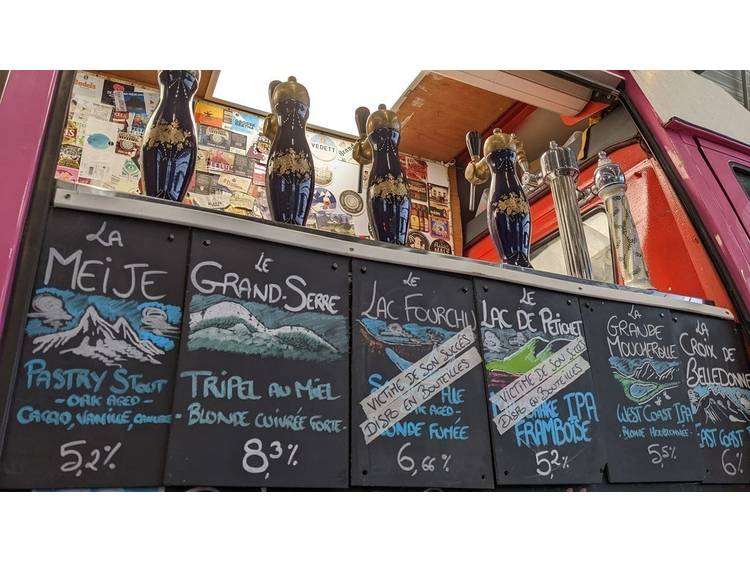 VEDETT
LA
MEIJE
PASTRY STOUT
- OAK AGED -
CACAO, VANILLE,
5,2%
LE
GRAND-SERRE
TRIPEL AU MIEL
- BLONDE CUIVRÉE FORTE -
8,3%
LE
LAC FOURCHU
VICTIME DE SON SUCCÈS
DISPO EN BOUTEILLES
ALE
OAK AGED -
BLONDE FUMÉE
6,66%
LE
LAC DE PÉTICHET
VICTIME DE SON SUCCÈS
DISPO EN BOUTEILLES
IPA
FRAMBOISE
5,2%
LA
GRANDE
MOUCHEROLLE
WEST COAST IPA
- BLONDE HOUBLONNÉE -
5,5%
LA
CROIX DE
BELLEDONNE
EAST COAST
6%